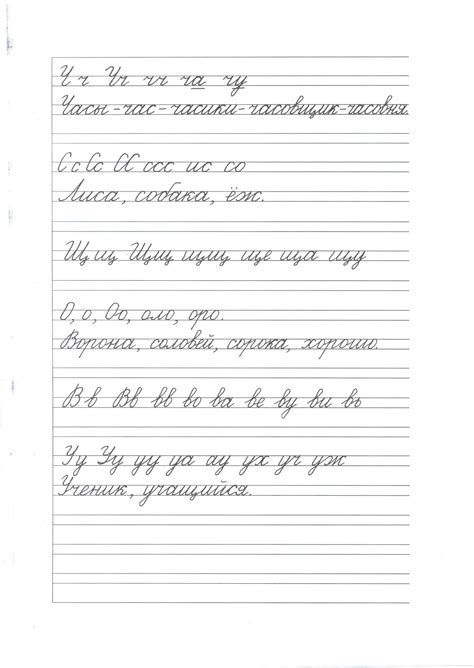 Ч ч Чч чч ча чу
Часы-час-часики-часовщик-часовня.
С с Сс СС ссс ис со
Лиса, собака, ёж.
Щ щ Щщ щщщ ще ща щу
О, о, Оо, оло, оро.
Ворона, соловей, сорока, хорошо.
В в Вв вв во ва ве ву ви вь
Уу Уу уу уа ау ух уч уж
Ученик, учащийся.